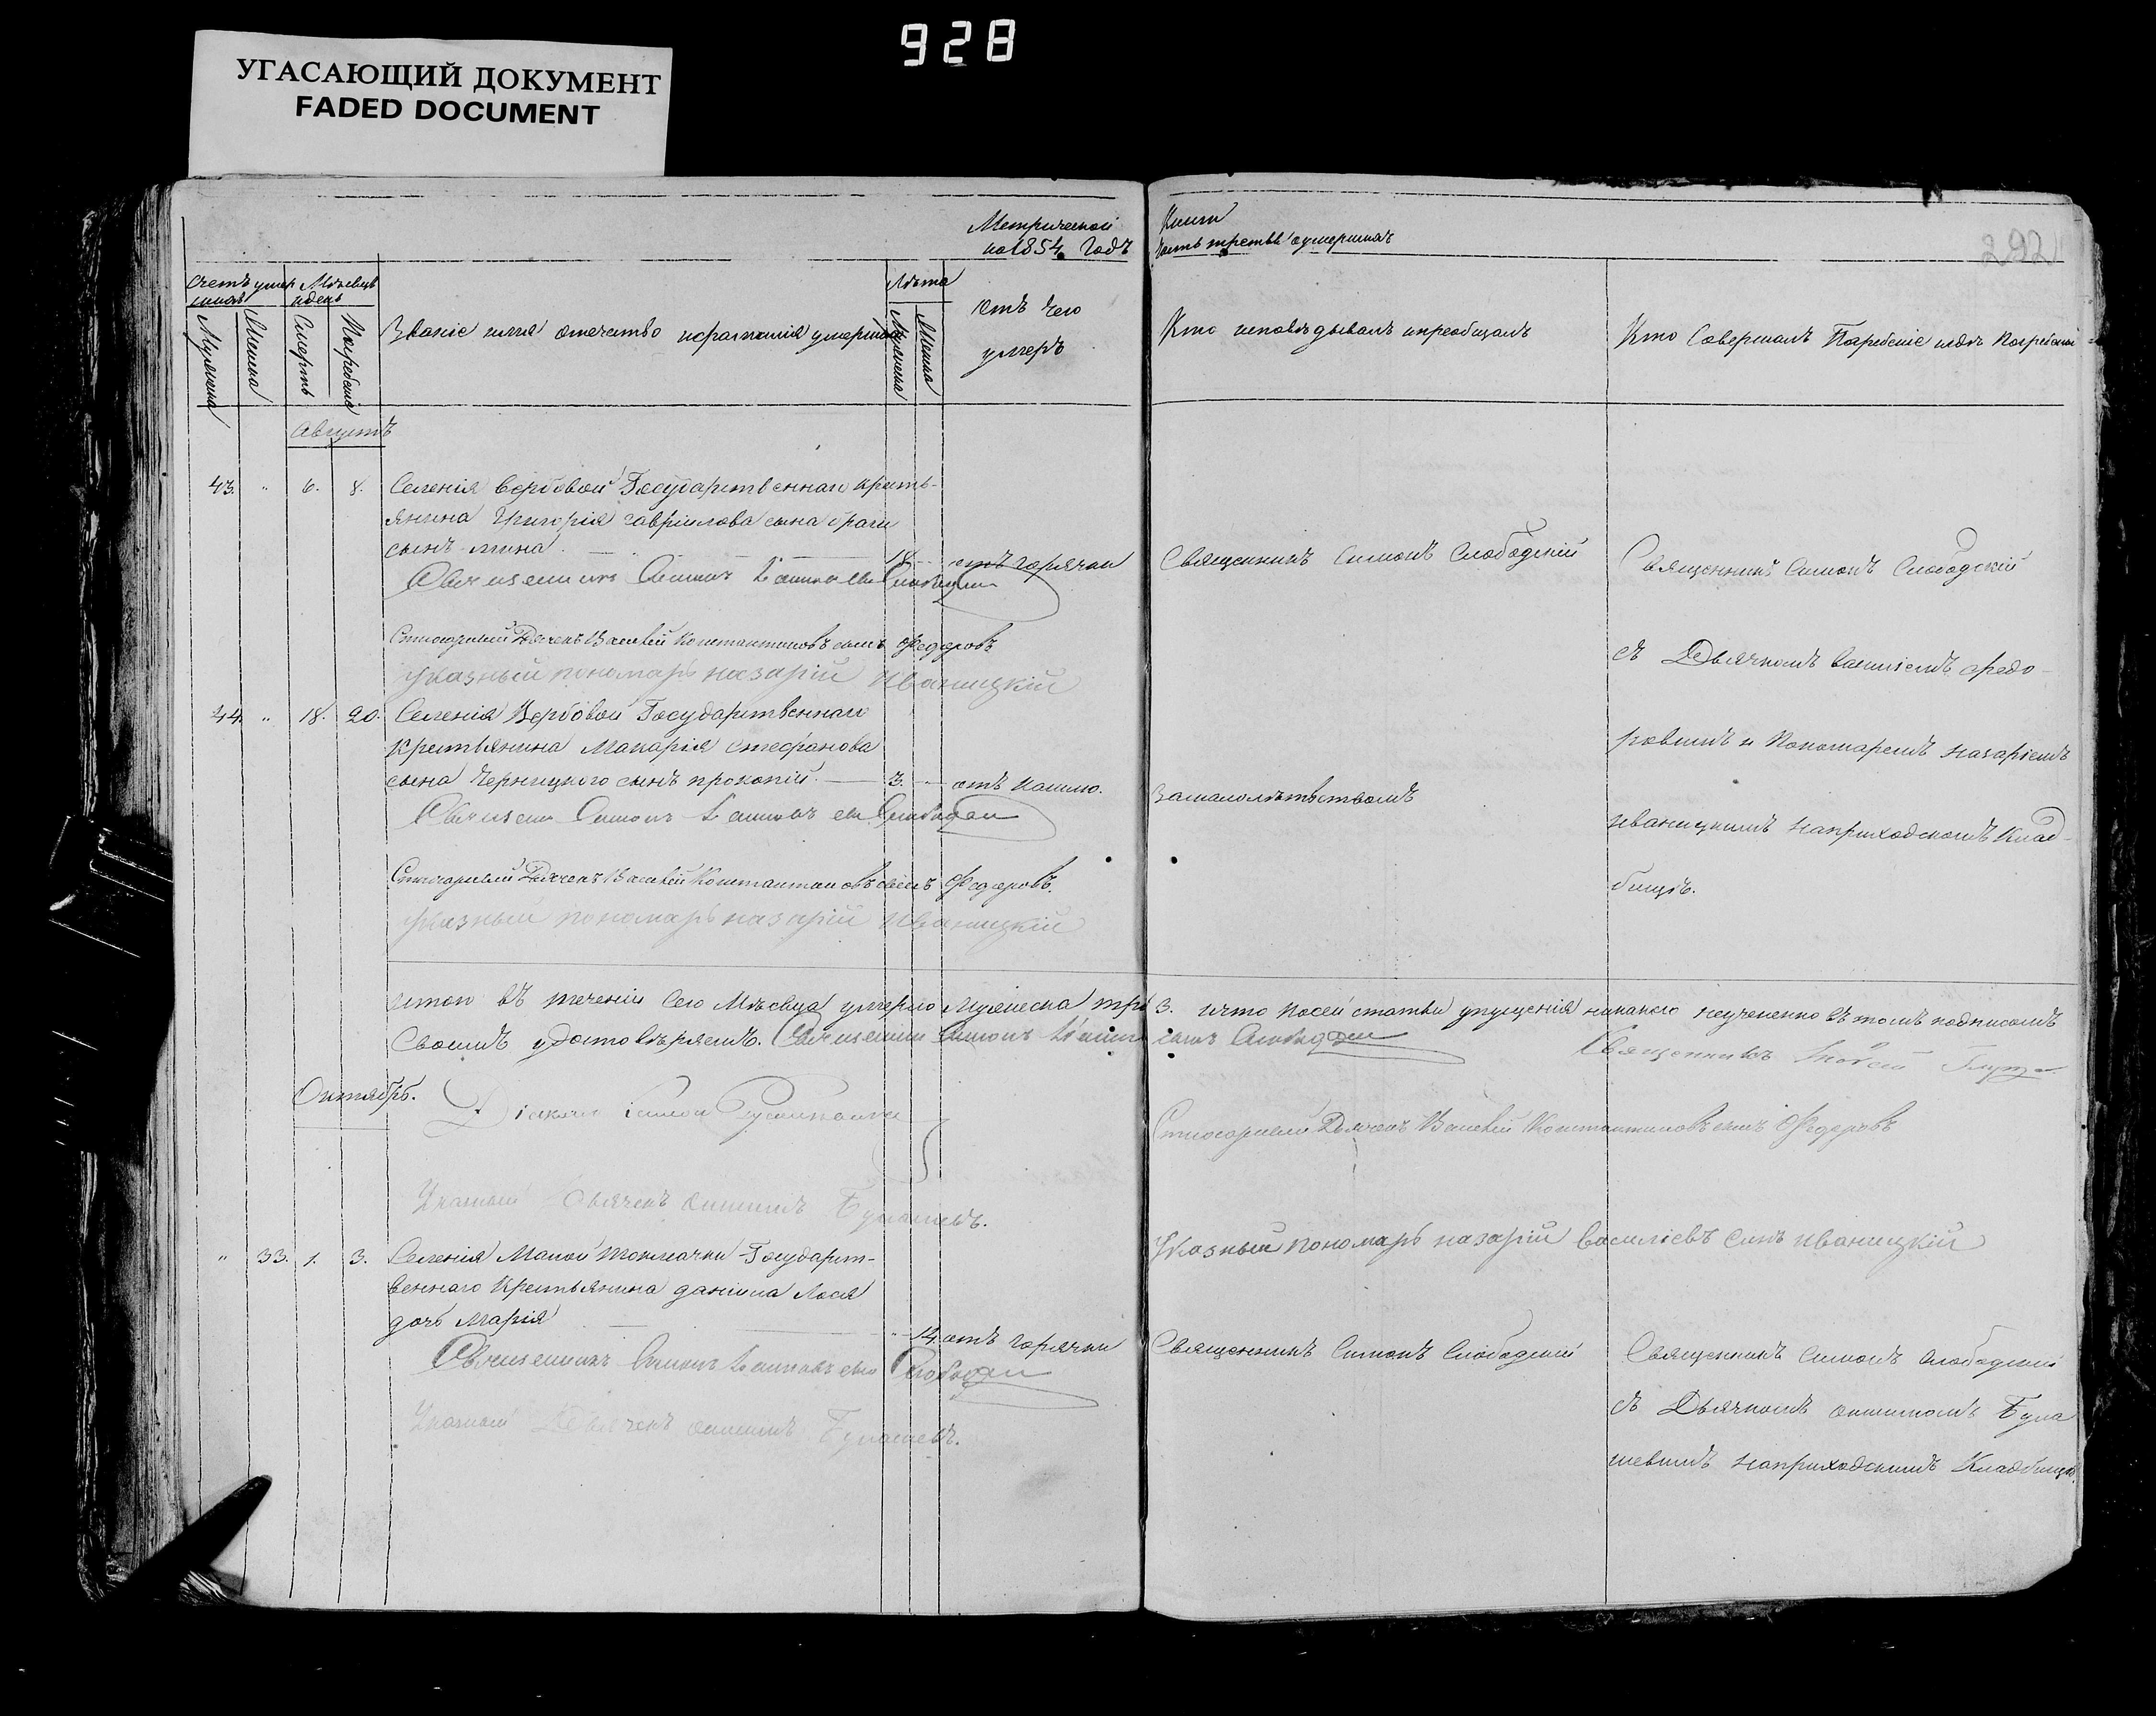 928
УГАСАЮЩИЙ ДОКУМЕНТ
FADED DOCUMENT
Метрической
на 1854. Годъ
Книги
Часть третья о умершихъ
292
Счетъ умер
шихъ
Мѣсяцъ
и день
Лѣта
Мужеска
Женска
Смерть
Погребенія
Званіе имя отечество и фамилія умершаго
Мужеска
Женска
Отъ чего
умеръ
Кто исповѣдывалъ и преобщалъ
Кто Совершалъ Погребеніе и гдѣ Погребены
Августъ
43. " 6. 8. Селенія Вербовой Государственнаго кресть-
янина Григорія гавріилова сына
сынъ мина. 18 отъ горячки
Священникъ Симонъ Слободскій
Священникъ Симонъ Слободскій
Стихарный Дьячекъ Василій Константиновъ сынъ Федоровъ
Указный пономарь назарій Иваницкій
съ Дьячкомъ василіемъ федо-
ровымъ и Пономаремъ назаріемъ
иваницкимъ на приходскомъ клад-
бищѣ.
44. " 18. 20. Селенія Вербовой Государственнаго
крестьянина Макарія стефанова
сына Черницкого сынъ прокопій. 3. отъ кашлю.
За малолѣтствомъ
Стихарный Дьячекъ Василій Константиновъ сынъ Федоровъ.
Указный пономарь назарій Иваницкій
Итого въ теченіи Сего Мѣсяца умерло Мужеска три 3. и что по сей статьи упущенія никакого неучинено въ томъ подписомъ
Своимъ удостовѣряемъ.
Священникъ
Октябрь.
Стихарный Дьячекъ Василій Константиновъ сынъ Федоровъ
Указный Дьячекъ Булашевъ.
Указный пономарь назарій василіевъ сынъ иваницкій
" 33. 1. 3. Селенія Малой Токмачки Государст-
веннаго Крестьянина даніила Лося
дочь Марія 14. отъ горячки
Священникъ Симонъ Слободскій
Священникъ Симонъ Слободскій
Указный Дьячекъ Булашевъ.
съ Дьячкомъ Була
шевымъ на приходскимъ Кладбищѣ.